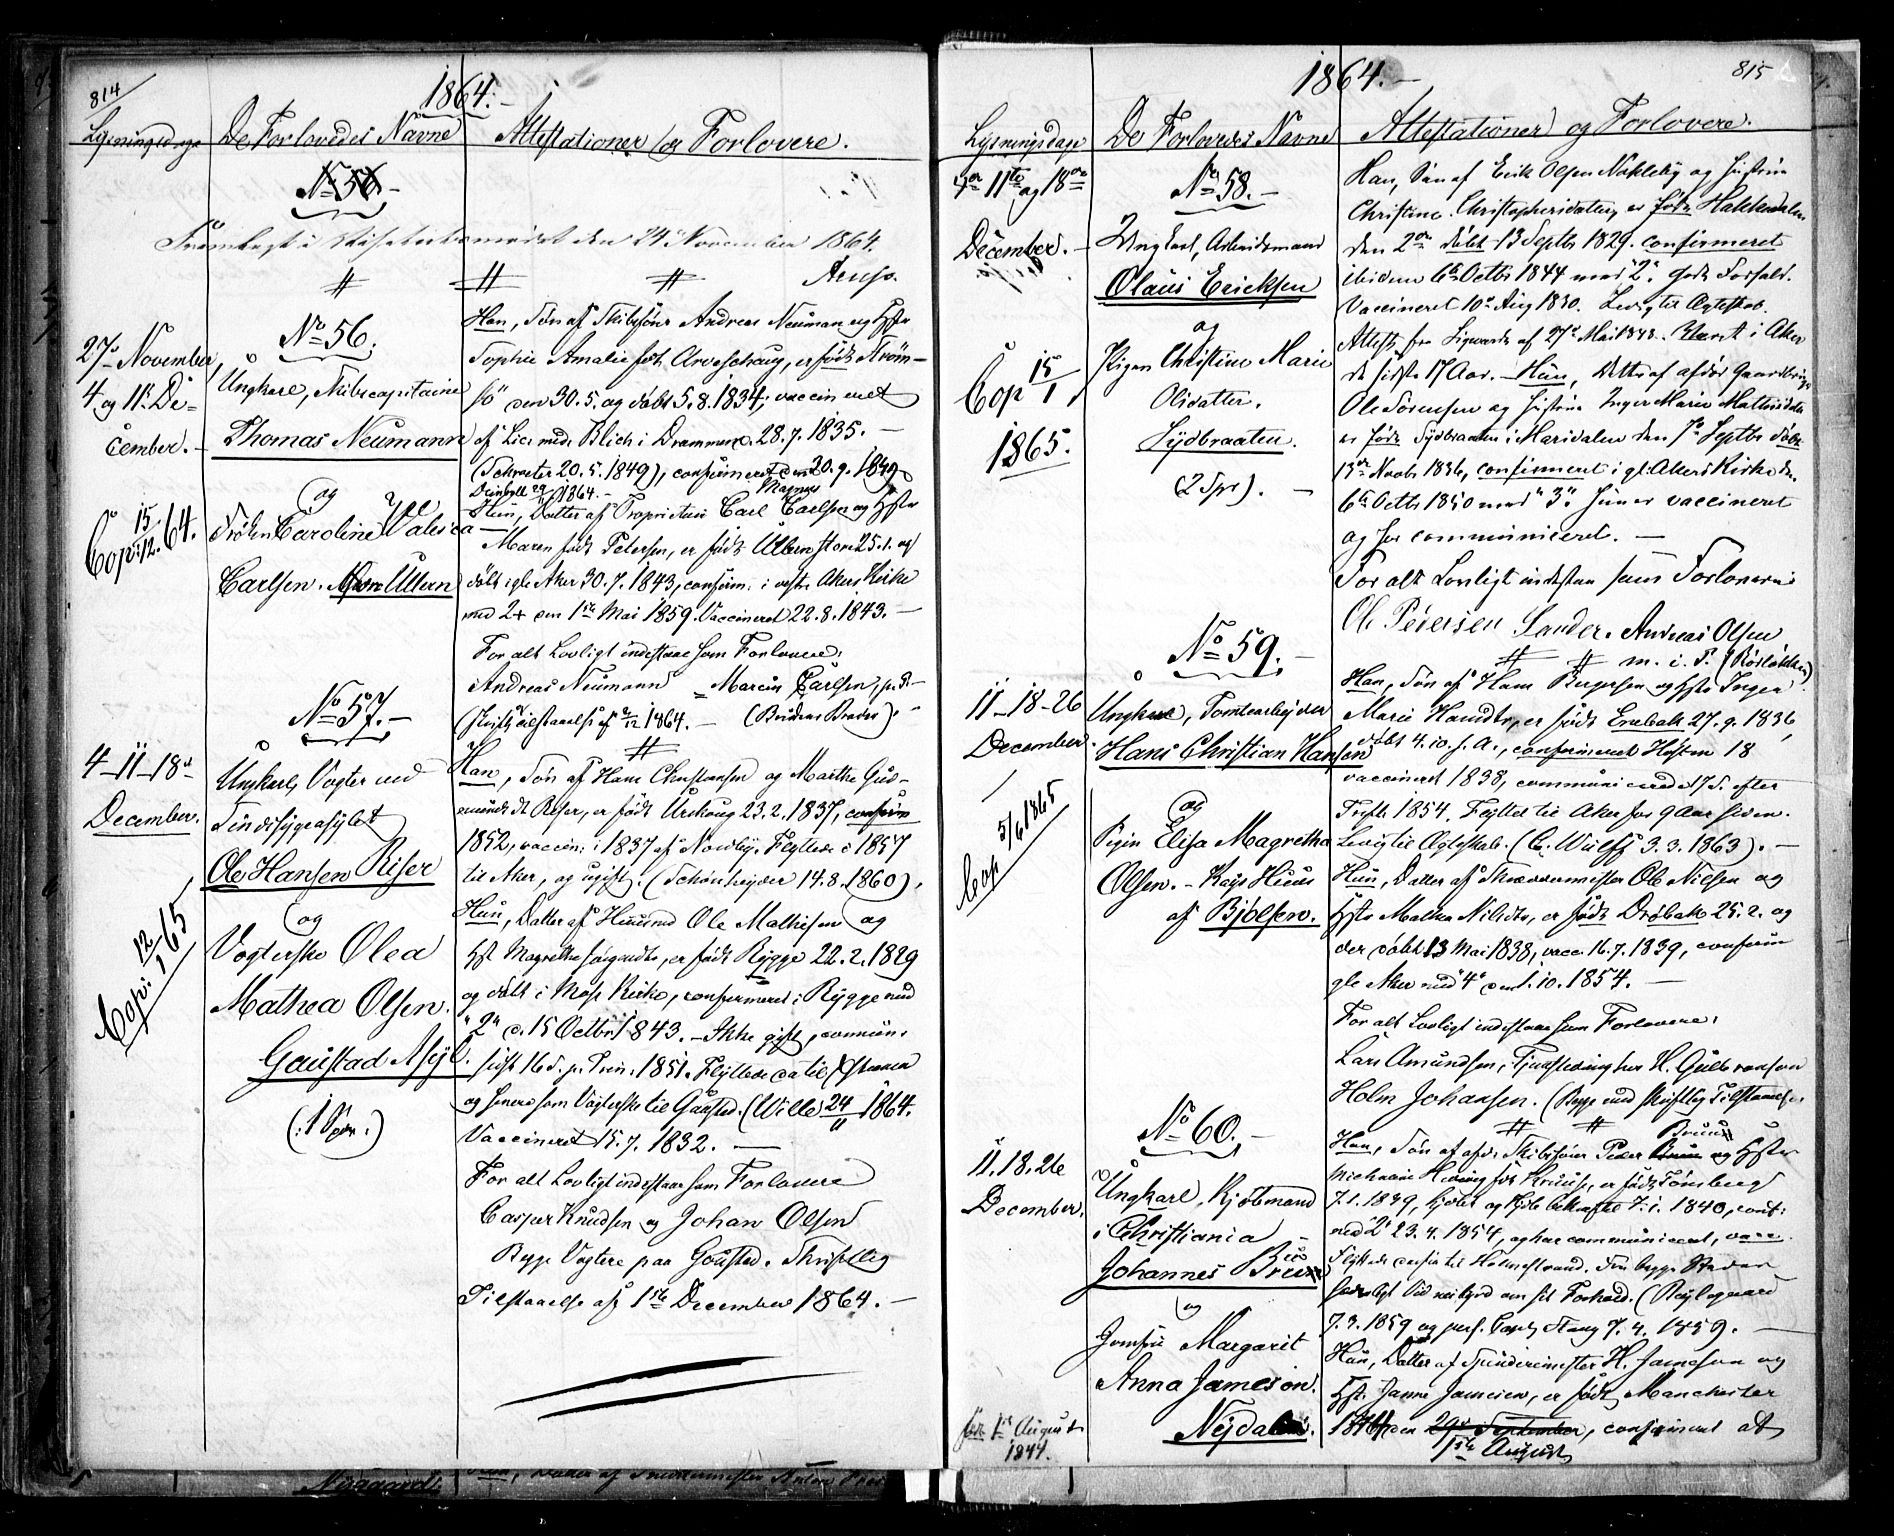 814
1864.
Lysningsdage
De Forlovedes Navne
Attestationer og Forlovere.
No 56.
Fremlagt i den 24 November 1864.
27. November,
4 og 11. De=
cember.
Cop: 15/12 64.
No 56.
Ungkarl, Skibscapitaine
Thomas Neumann
og
Frøken Caroline Valesca
Carlsen. Ullern
Han, Søn af Skibsfører Andreas Neuman og Hstr
Sophie Amalie født Arveschoug, er født Trom-
sö den 30.5. og döbt 5.8.1834, vaccineret
af Lic. med. Blich i Drammen 28.7.1835.
(Schroeter 20.5.1849), confirmeret den 20.9.1849
1864.
Magnus
Hun, Datter af Proprietair Carl Carlsen og Hstr
Maren født Petersen, er født Ullern store 25.1. og
döbt i gle Aker 30.7.1843, confirm. i vestr. Akers Kirke
med 2+ den 1ste Mai 1859. Vaccineret 22.8.1843.
For alt Lovligt indestaae som Forlovere:
Andreas Neumann = Marcus Carlsen,
(Skriftl. Tilstaaelse af 2/12 1864. (Brudens Broder).
4-11-18d
December.
Cop: 12/1 65
No 57.
Ungkarl, Vogter ved
Sindssygeasylet
Ole Hansen Riser
og
Vogterske Olea
Mathea Olsen.
Gaustad Asyl.
(:1 Spr:)
Han, Søn af Hans Christiansen og Marthe Gud-
mundsdt Riser, er født Urskoug 23.2.1837, confirm
1852, vaccin. i 1837 af Nordbye. Flyttede i 1857
til Aker, og ugift. (Schönheyder 14.8.1860).
Hun, Datter af Huusmd Ole Mathisen og
Hst Magrethe Jörgensdtr, er født Rygge 22.2.1829
og döbt i Moss Kirke, confirmeret i Rygge med
"2" d. 15 Octbr 1843. - Ikke gift, commun.
sidst 16 S. p. Trin. 1851. Flyttede da til
og senere som Vogterske til Gaustad. (Wille 24/11 1864.
Vaccineret 15.7.1832.
For alt Lovligt indestaae som Forlovere
Casper Knudsen og Johan Olsen
Begge Vogtere paa Gaustad. Skriftlig
Tilstaaelse af 1ste December 1864.
815
1864.
Lysningsdage
De Forlovedes Navne
Attestationer og Forlovere.
4de 11te og 18de
December.
Cop 15/1
1865.
No 58.
Ungkarl, Arbeidsmand
Olaus Ericksen
og
Pigen Christine Marie
Olsdatter.
Sydbraaten.
(2 Spr).
Han, Søn af Erik Olsen Nökleby og Hustru
Christine Christophersdatter, er født Hakkedalen
den 2den döbt 13 Septbr 1829. confirmeret
ibidem 6te Octbr 1844 med "2". gode Forhold.
Vaccineret 10de Aug 1830. Ledig til Ægteskab.
Attest fra af 27de Mai 1848. Været i Aker
de sidste 17 Aar. - Hun, Datter af afdöde Gaardbruger
Ole Sörensen og Hustru Inger Marie Mathisdatter
er født Sydbraaten i Maridalen den 7de Septbr döbt
13de Novbr 1836, confirmeret i gl: Akers Kirke den
6te Octbr 1850 med "3". Hun er vaccineret
og har communiceret.
For alt Lovligt indestaa som Forlovere:
Ole Pedersen Sander. Andreas Olsen
m. i. P. (Rösløkken)
11-18-26
December.
Cop 5/6 1865
No 59.
Ungkarl, Tomtearbeider
Hans Christian Hansen
og
Pigen Elisa Magretha
Olsen. - Kays Huus
af Bjölsen.
Han, Søn af Hans Birgersen og Hstr Inger
Marie Hansdtr, er født Enebak 27.9.1836,
döbt 4.10. s. A., confirmeret Høsten 18
vaccineret 1838, communicerede 17 S. efter
Trefh. 1854. Flyttet til Aker for 9 Aar siden.
Ledig til Ægteskab. (C. Wulff 3.3.1863).
Hun, Datter af Skræddermester Ole Nielsen og
Hstr Mathea Nilsdtr, er født Dröbak 25.2. og
der döbt 13 Mai 1838, vacc. 16.7.1839, confirm
gle Aker med "4" den 1.10.1854.
For alt Lovligt indestaae som Forlovere:
Lars Amundsen, hos H. Gulbranson
Holm Johansen. (Begge med skriftlig Tilstaaelse
11.18.26
December.
født 1ste August
1844.
No 60.
Ungkarl, Kjöbmand
i Christiania
Johannes Bruu
og
Jomfru Margaret
Anna Jameson.
Nydalen.
Bruu
Han, Søn af afd. Skibsfører Peder og Hstr
født Kruuse, er født Tönsberg
7.1.1839, hjdöbt og Hjdb bekræftet 7.1.1840, conf:
med 2 23.4.1854, og har communiceret, vacc.
Flyttede derfra til Holmestrand. Fra begge Steder
om sit Forhold. (
7.3.1859 og 7.4.1859.
Hun, Datter af Spinderimester H. Jameson og
Hst. Janne Jameson, er født Manchester
1844 den 29de September, confirmeret at
1ste August